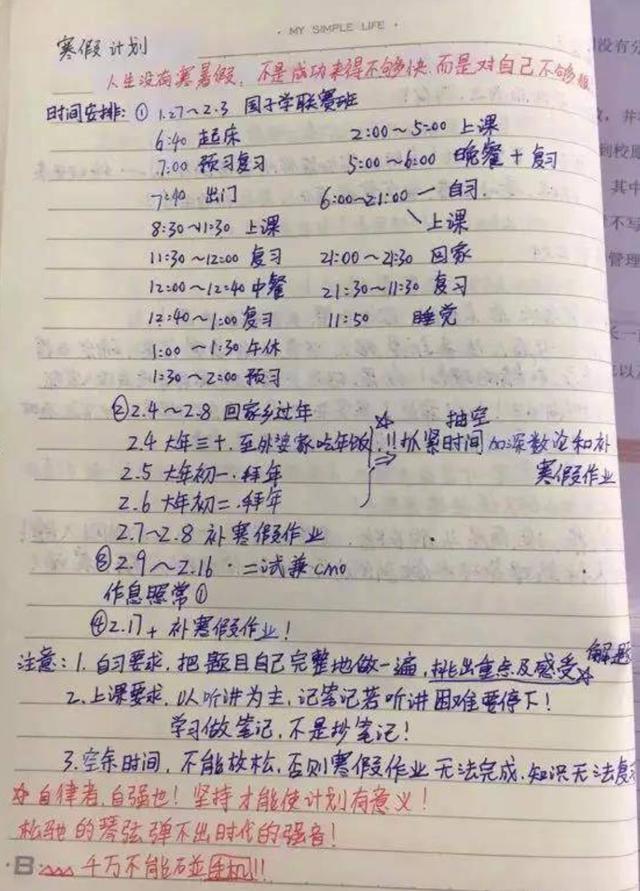 · MY SIMPLE LIFE ·
寒假计划
人生没有寒暑假, 不是成功来得不够快, 而是对自己不够狠
时间安排: ① 1.27～2.3 国子学联赛班
6:40 起床 2:00～5:00 上课
7:00 预习复习 5:00～6:00 晚餐+复习
7:40 出门 6:00～21:00 — 自习
8:30～11:30 上课 \ 上课
11:30～12:00 复习 21:00～21:30 回家
12:00～12:40 中餐 21:30～11:30 复习
12:40～1:00 复习 11:50 睡觉
1:00～1:30 午休
1:30～2:00 预习
②2.4～2.8 回家乡过年 ☆ 抽空
2.4 大年三十, 至外婆家吃年饭 !! 抓紧时间加深数论和补
2.5 大年初一, 拜年 ⇒ 寒假作业
2.6 大年初二, 拜年
2.7～2.8 补寒假作业
③2.9～2.16 · 二试兼CMO
作息照常①
④2.17+ 补寒假作业!
注意: 1. 自习要求, 把题目自己完整地做一遍, 挑出重点及感受☆ 解题
2. 上课要求, 以听讲为主, 记笔记若听讲困难要停下!
学习做笔记, 不是抄笔记!
3. 空余时间, 不能放松, 否则寒假作业无法完成, 知识无法复
☆自律者, 自强也! 坚持才能使计划有意义!
松驰的琴弦弹不出时代的强音!
·B· 千万不能碰手机!!